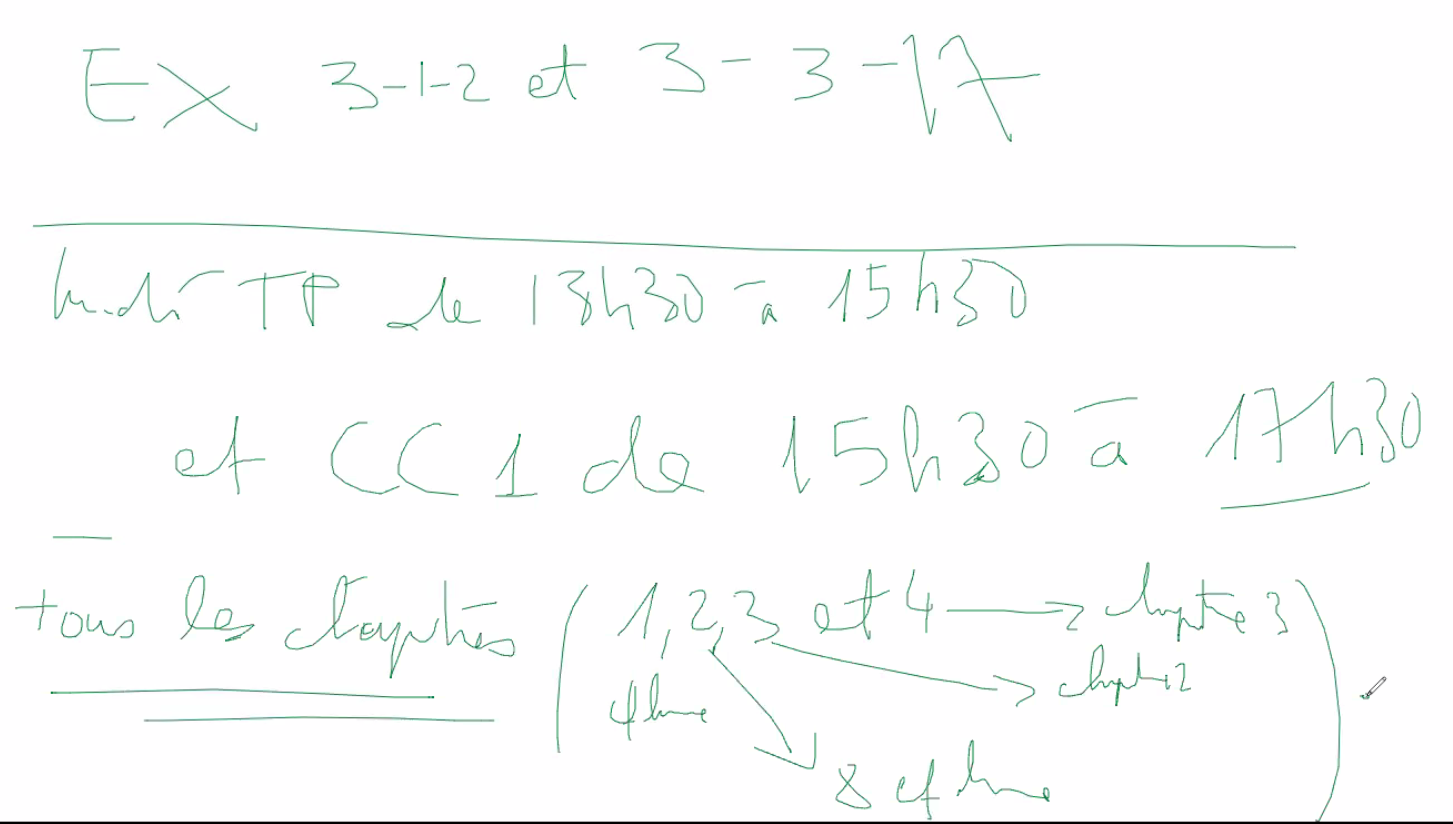 Ex 3-1-2 et 3-3-17
lundi TP de 13h30 à 15h30
et CC1 de 15h30 à 17h30
tous les chapitres (1,2,3 et 4 → chapitre 3
→ chapitre 2
8 cf)